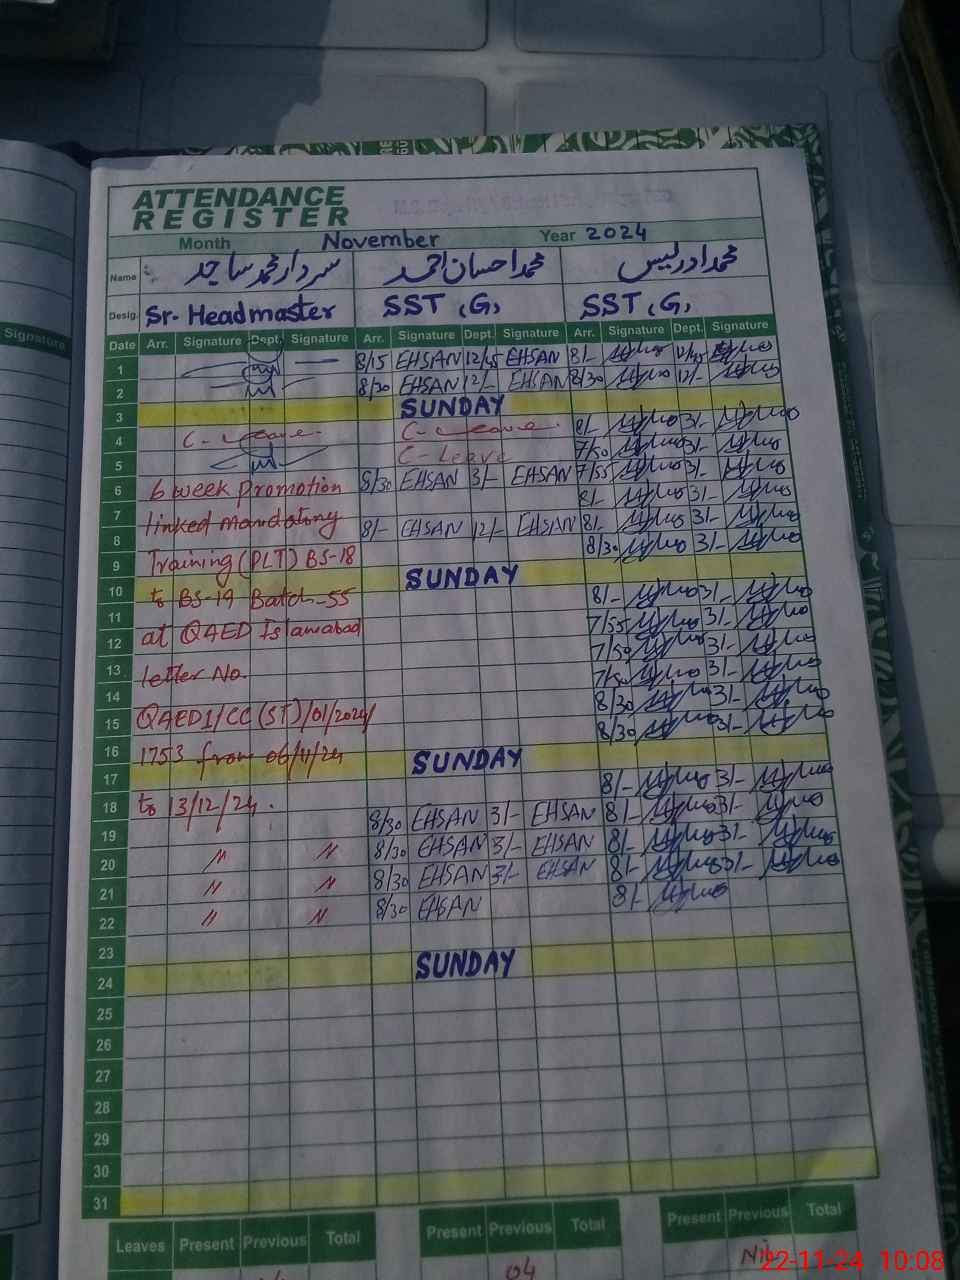 ATTENDANCE
REGISTER
Month November Year 2024
Name سردار محمد ساجد محمد احسان احمد محمد ادریس
Desig. Sr. Headmaster SST (G) SST (G)
Signature
Date Arr. Signature Dept. Signature Arr. Signature Dept. Signature Arr. Signature Dept. Signature
1 8/15 EHSAN 12/45 EHSAN 8/- 12/45
2 8/30 EHSAN 12/- EHSAN 8/30 12/-
3 SUNDAY
4 C-Leave C-Leave 8/- 3/-
5 C-Leave 7/50 3/-
6 6 week Promotion 8/30 EHSAN 3/- EHSAN 7/55 3/-
7 linked mandatory 8/- 3/-
8 8/- EHSAN 12/- EHSAN 8/- 3/-
9 Training (PLT) BS-18 8/30 3/-
10 to BS-19 Batch-55 SUNDAY
11 8/- 3/-
12 at QAED Islamabad 7/55 3/-
13 letter No. 7/50 3/-
14 7/50 3/-
15 QAED1/CC(ST)/01/2024/ 8/30 3/-
16 8/30 3/-
17 1753 from 06/11/24 SUNDAY
18 to 13/12/24. 8/- 3/-
19 8/30 EHSAN 3/- EHSAN 8/- 3/-
20 " " 8/30 EHSAN 3/- EHSAN 8/- 3/-
21 " " 8/30 EHSAN 3/- EHSAN 8/- 3/-
22 " " 8/30 EHSAN 8/-
23
24 SUNDAY
25
26
27
28
29
30
31
Leaves Present Previous Total Present Previous Total Present Previous Total
04 Nil
22-11-24 10:08